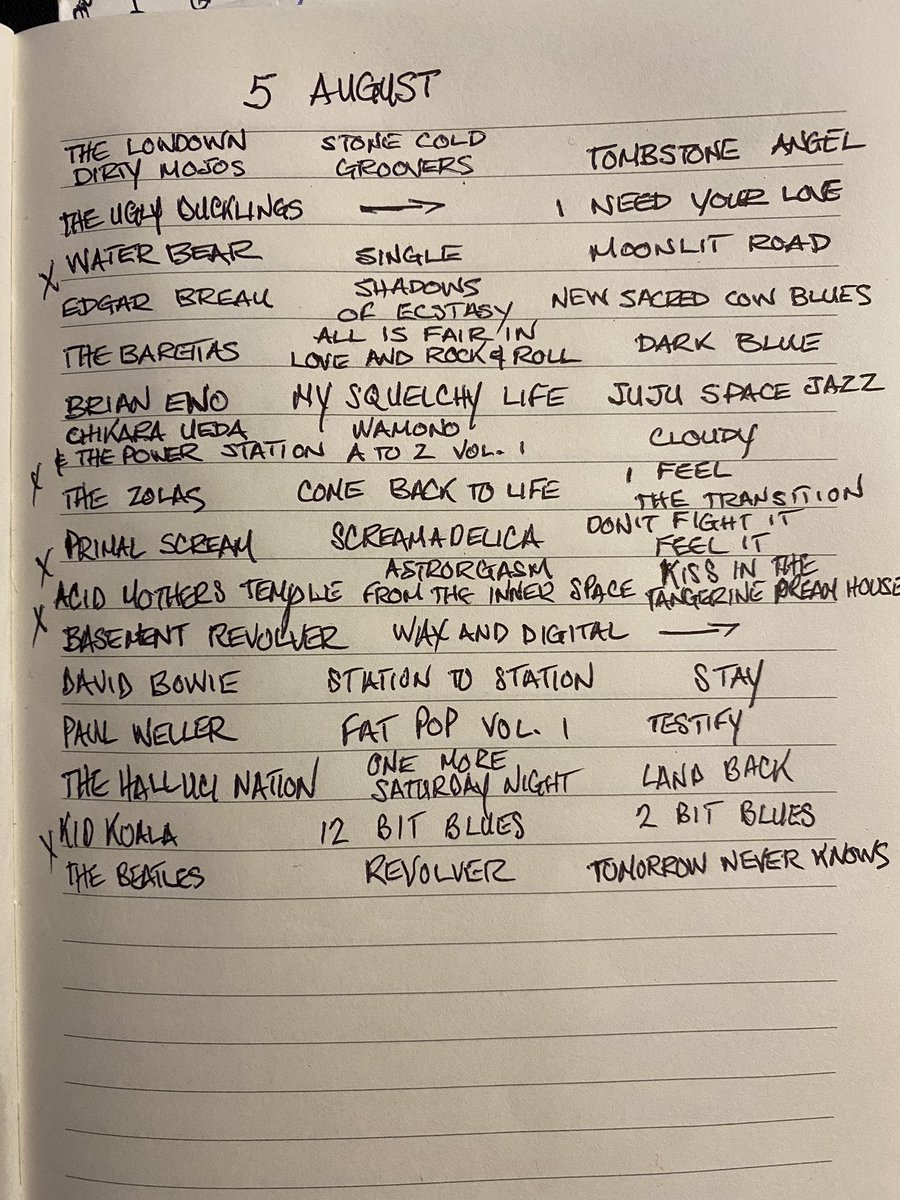 5 AUGUST
THE LOWDOWN DIRTY MOJOS STONE COLD GROOVERS TOMBSTONE ANGEL
THE UGLY DUCKLINGS → I NEED YOUR LOVE
X WATER BEAR SINGLE MOONLIT ROAD
EDGAR BREAU SHADOWS OF ECSTASY NEW SACRED COW BLUES
THE BARETTAS ALL IS FAIR IN LOVE AND ROCK & ROLL DARK BLUE
BRIAN ENO MY SQUELCHY LIFE JUJU SPACE JAZZ
CHIKARA UEDA & THE POWER STATION WAMONO A TO Z VOL. 1 CLOUDY
X THE ZOLAS COME BACK TO LIFE I FEEL THE TRANSITION
PRIMAL SCREAM SCREAMADELICA DON'T FIGHT IT FEEL IT
X ACID MOTHERS TEMPLE ASTRORGASM FROM THE INNER SPACE KISS IN THE TANGERINE DREAM HOUSE
X BASEMENT REVOLVER WAX AND DIGITAL →
DAVID BOWIE STATION TO STATION STAY
PAUL WELLER FAT POP VOL. 1 TESTIFY
THE HALLUCI NATION ONE MORE SATURDAY NIGHT LAND BACK
X KID KOALA 12 BIT BLUES 2 BIT BLUES
THE BEATLES REVOLVER TOMORROW NEVER KNOWS